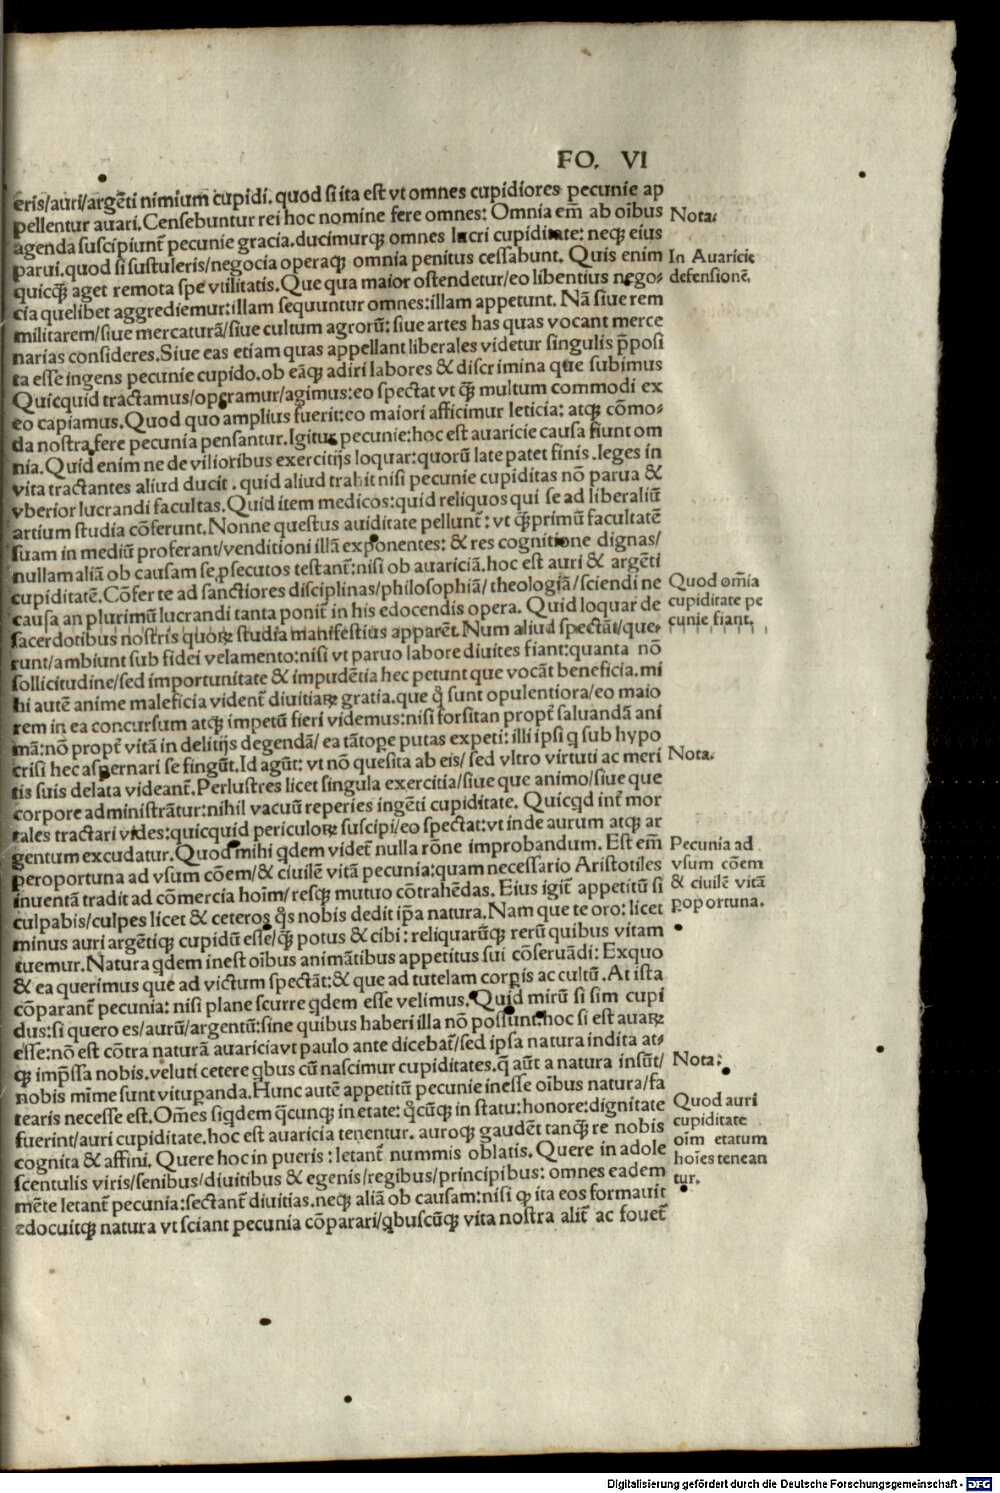 FO. VI
eris/auri/argēti nimium cupidi. quod si ita est vt omnes cupidiores pecunie ap
pellentur auari. Censebuntur rei hoc nomine fere omnes: Omnia em̄ ab oībus
agenda suscipiunt̃ pecunie gracia. ducimurqꝫ omnes lucri cupiditate: neqꝫ eius
parui. quod si sustuleris/negocia operaqꝫ omnia penitus cessabunt. Quis enim
quicqꝫ̄ aget remota spe vtilitatis. Que qua maior ostendetur/eo libentius nego⸗
cia quelibet aggrediemur: illam sequuntur omnes: illam appetunt. Nā siue rem
militarem/siue mercaturā/siue cultum agrorū: siue artes has quas vocant merce
narias consideres. Siue eas etiam quas appellant liberales videtur singulis p̄posi
ta esse ingens pecunie cupido. ob eāqꝫ adiri labores & discrimina que subimus
Quicquid tractamus/operamur/agimus: eo spectat vt qꝫ̄ multum commodi ex
eo capiamus. Quod quo amplius fuerit: eo maiori afficimur leticia: atqꝫ cōmo⸗
da nostra fere pecunia pensantur. Igitur pecunie: hoc est auaricie causa fiunt om
nia. Quid enim ne de vilioribus exercitijs loquar: quorū late patet finis. leges in
vita tractantes aliud ducit. quid aliud trahit nisi pecunie cupiditas nō parua &
vberior lucrandi facultas. Quid item medicos: quid reliquos qui se ad liberaliū
artium studia cōferunt. Nonne questus auiditate pellunt̃: vt qꝫ̄primū facultatē
suam in mediū proferant/venditioni illā exponentes: & res cognitione dignas/
nullam aliā ob causam se ꝓsecutos testant̃: nisi ob auariciā. hoc est auri & argēti
cupiditatē. Cōfer te ad sanctiores disciplinas/philosophiā/theologiā/sciendi ne
causa an plurimū lucrandi tanta ponit̃ in his edocendis opera. Quid loquar de
sacerdotibus nostris quorꝝ studia manifestius apparēt. Num aliud spectāt/que⸗
runt/ambiunt sub fidei velamento: nisi vt paruo labore diuites fiant: quanta nō
sollicitudine/sed importunitate & impudētia hec petunt que vocāt beneficia. mi
hi autē anime maleficia vident̃ diuitiarꝝ gratia. que q̊ sunt opulentiora/eo maio
rem in ea concursum atqꝫ impetū fieri videmus: nisi forsitan propt̃ saluandā ani
mā: nō propt̃ vitā in delitijs degendā/ea tātope putas expeti: illi ipsi q sub hypo
crisi hec aspernari se fingūt. Id agūt: vt nō quesita ab eis/sed vltro virtuti ac meri
tis suis delata videant̃. Perlustres licet singula exercitia/siue que animo/siue que
corpore administrātur: nihil vacuū reperies ingēti cupiditate. Quicqd int̃ mor
tales tractari vides: quicquid periculorꝝ suscipi/eo spectat: vt inde aurum atqꝫ ar
gentum excudatur. Quod mihi qdem videt̃ nulla rōne improbandum. Est em̄
peroportuna ad vsum cōem/& ciuilē vitā pecunia: quam necessario Aristotiles
inuentā tradit ad cōmercia hoīm/resqꝫ mutuo cōtrahēdas. Eius igit̃ appetitū si
culpabis/culpes licet & ceteros q̊s nobis dedit ip̄a natura. Nam que te oro: licet
minus auri argētiqꝫ cupidū esse/qꝫ̄ potus & cibi: reliquarūqꝫ rerū quibus vitam
tuemur. Natura qdem inest oībus animātibus appetitus sui cōseruādi: Exquo
& ea querimus que ad victum spectāt: & que ad tutelam corꝑis ac cultū. At ista
cōparant̃ pecunia: nisi plane scurre qdem esse velimus. Quid mirū si sim cupi
dus: si quero es/aurū/argentū: sine quibus haberi illa nō possunt. hoc si est auarꝝ
esse: nō est cōtra naturā auaricia vt paulo ante dicebat̃/sed ipsa natura indita at⸗
qꝫ imp̄ssa nobis. veluti cetere qbus cū nascimur cupiditates. q̄ aūt a natura insūt/
nobis mīme sunt vituꝑanda. Hunc autē appetitū pecunie inesse oībus natura/fa
tearis necesse est. Om̄es siqdem q̄cunqꝫ in etate: q̊cūqꝫ in statu: honore: dignitate
fuerint/auri cupiditate. hoc est auaricia tenentur. auroqꝫ gaudēt tanqꝫ̄ re nobis
cognita & affini. Quere hoc in pueris: letant̃ nummis oblatis. Quere in adole
scentulis viris/senibus/diuitibus & egenis/regibus/principibus: omnes eadem
mēte letant̃ pecunia: sectant̃ diuitias. neqꝫ aliā ob causam: nisi ꝙ ita eos formauit
edocuitqꝫ natura vt sciant pecunia cōparari/qbuscūqꝫ vita nostra alit̃ ac fouet̃
Nota:
In Auaricie
defensionē.
Quod om̄ia
cupiditate pe
cunie fiant.
Nota.
Pecunia ad
vsum cōem
& ciuilē vitā
ꝑoportuna.
Nota:
Quod auri
cupiditate
oīm etatum
hoīes tenean
tur.
Digitalisierung gefördert durch die Deutsche Forschungsgemeinschaft - DFG